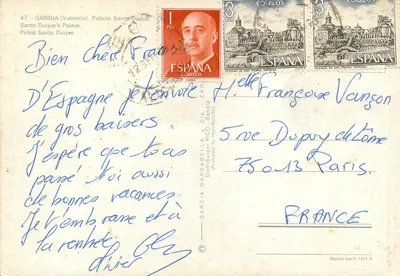 47 - GANDIA (Valencia). Palacio Santo Duque.
Santo Duque's Palace.
Palais Santo Duque.
Bien chère Françoise
D'Espagne je t'envoie
de gros baisers.
J'espère que tu as
passé toi aussi
de bonnes vacances.
Je t'embrasse et à
la rentrée.
1 PTA
ESPAÑA
3
CORREOS
ESPAÑA
3
CORREOS
ESPAÑA
Melle Françoise
5 rue Dupuy de Lôme
75013 Paris.
FRANCE